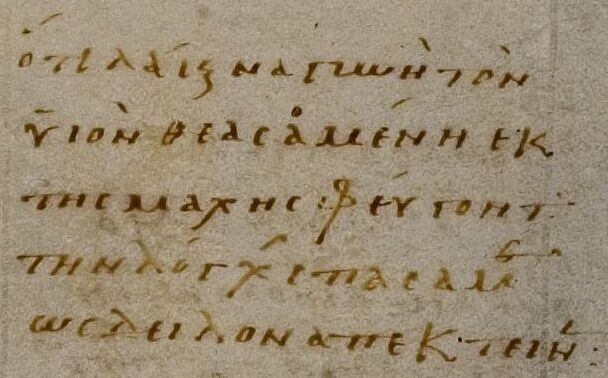 ὅτι λάκαινα γυνὴ τὸν
ὑιὸν θεασαμένη εκ
της μαχης φεύγοντ
την λόγχ σπασαμ
ως δειλον απεκτειν: